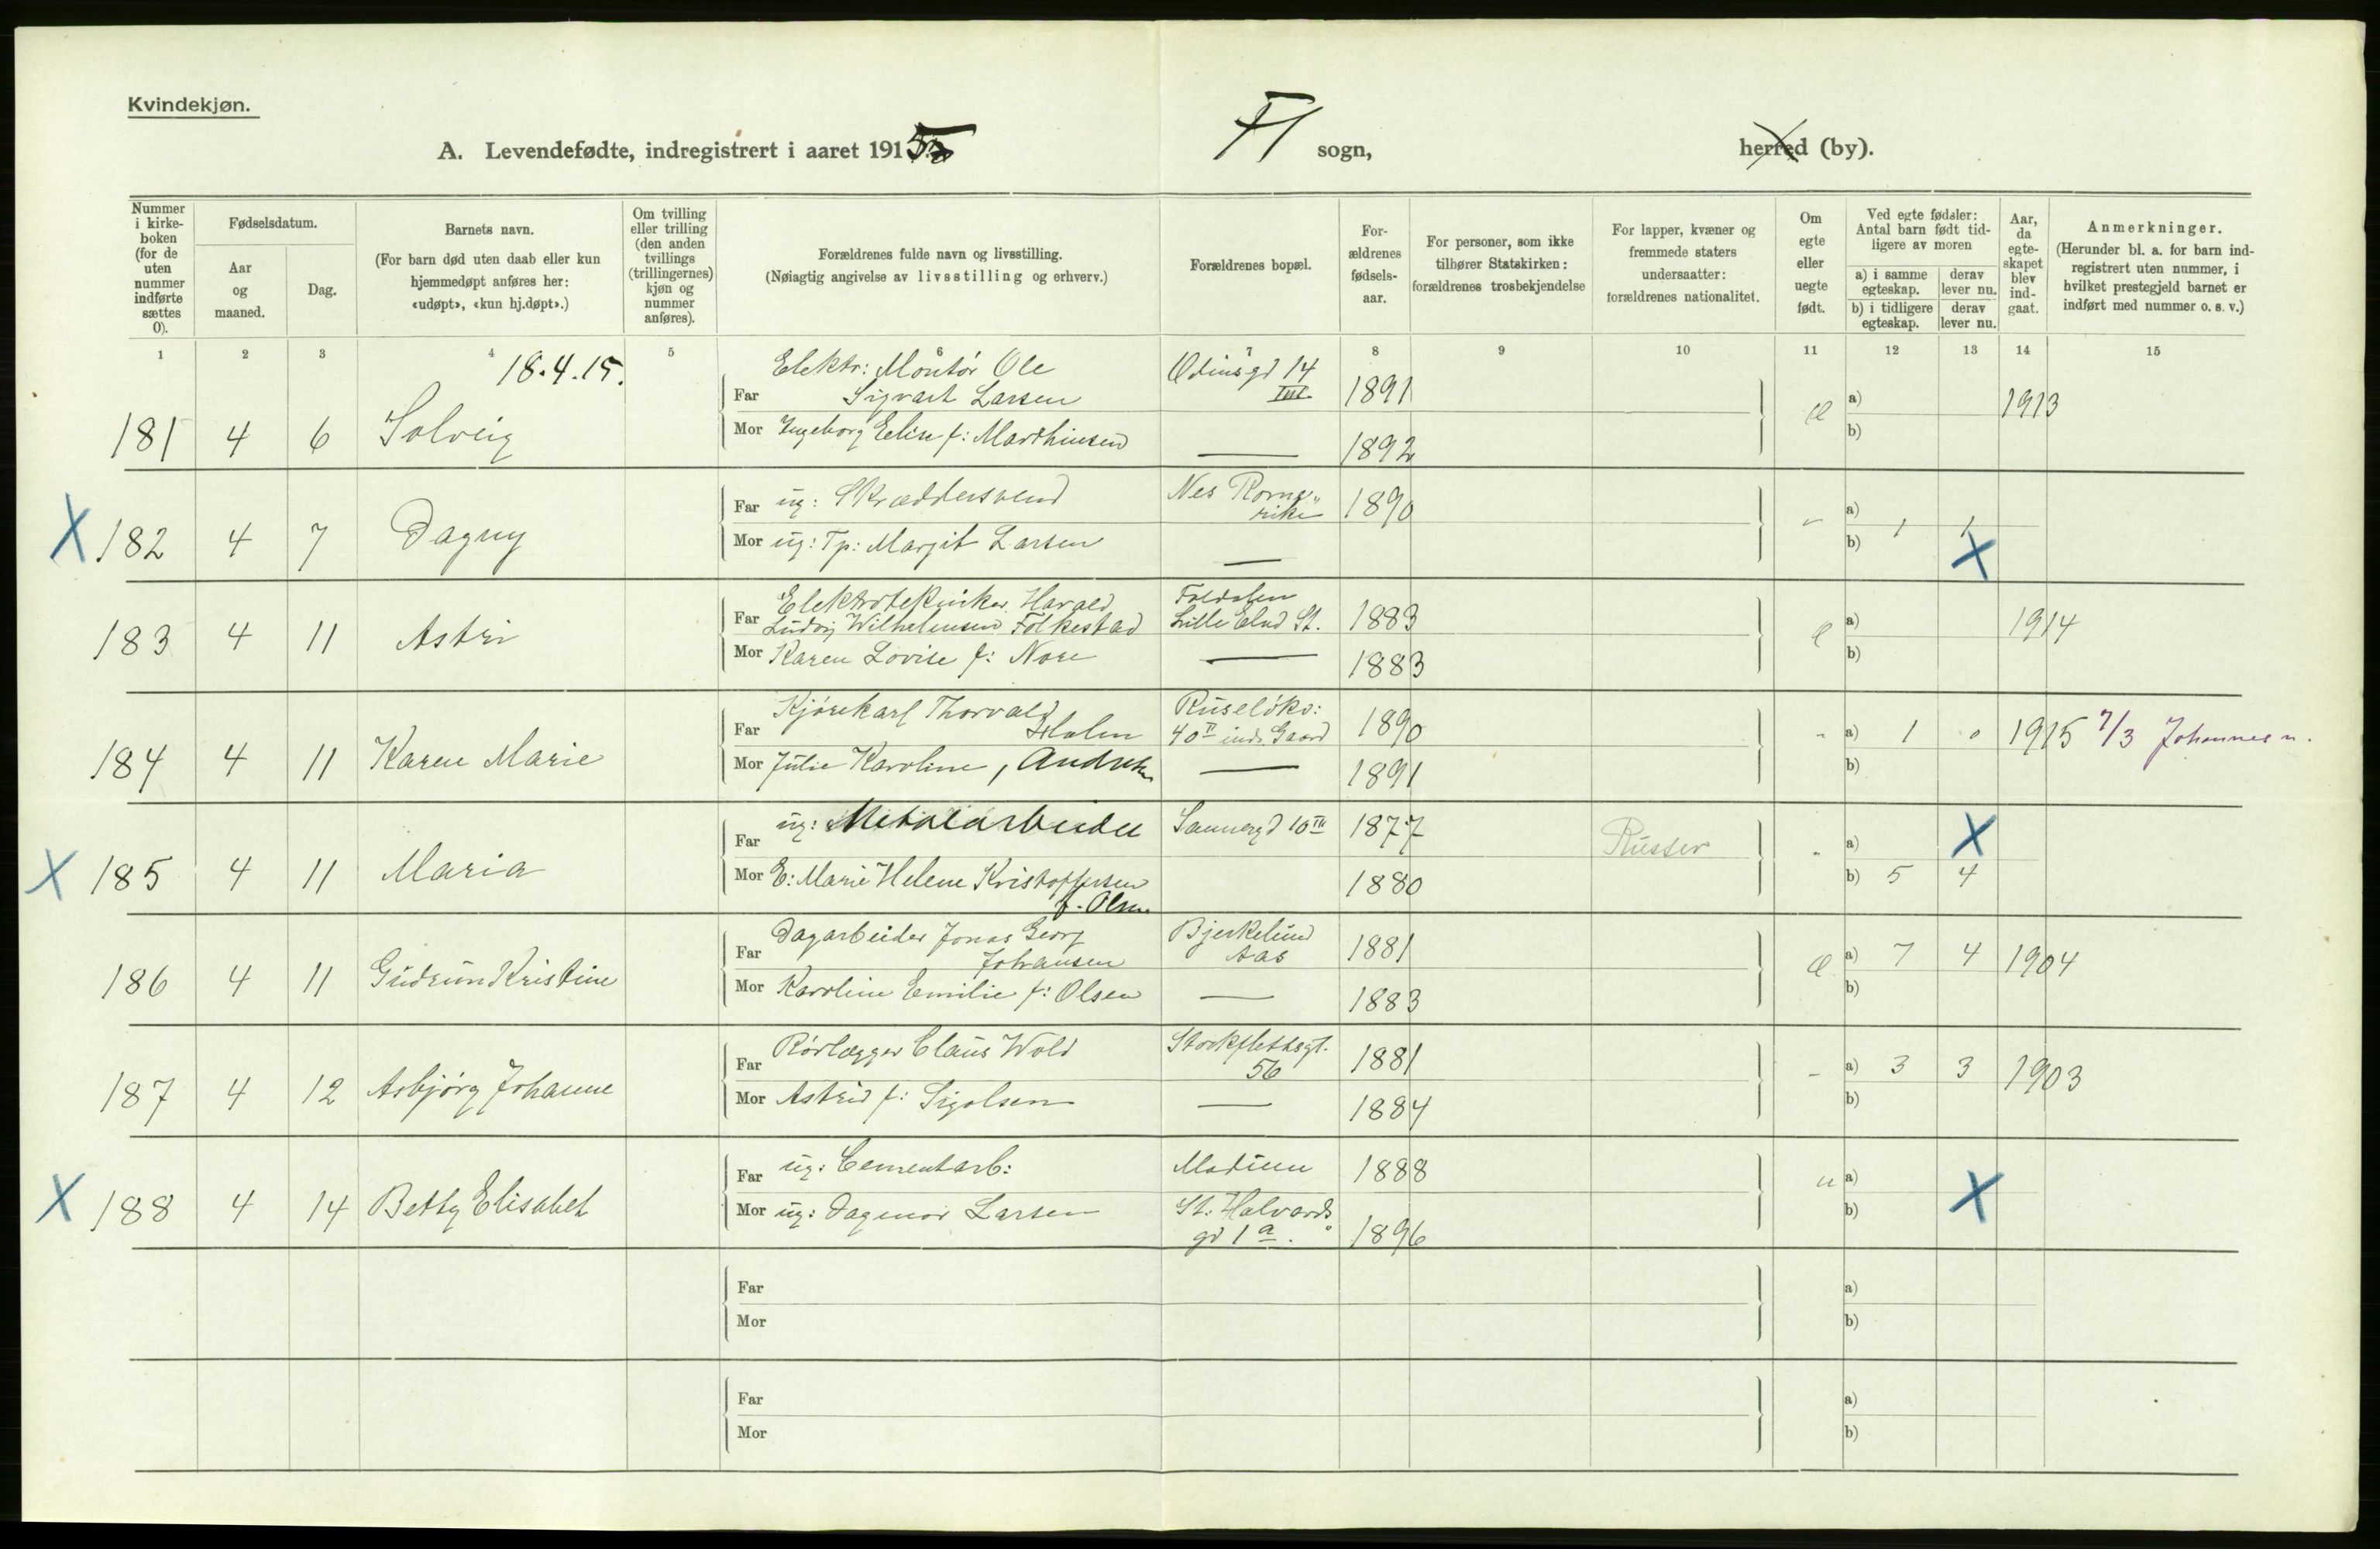 Kvindekjøn.
A. Levendefødte, indregistrert i aaret 1915 Fl sogn, herred (by).
Nummer i kirke-boken (for de uten nummer indførte sættes 0).
Fødselsdatum.
Aar og maaned.
Dag.
Barnets navn.
(For barn død uten daab eller kun hjemmedøpt anføres her: «udøpt», «kun hj.døpt».)
Om tvilling eller trilling (den anden tvillings (trillingernes) kjøn og nummer anføres).
Forældrenes fulde navn og livsstilling.
(Nøiagtig angivelse av livsstilling og erhverv.)
Forældrenes bopæl.
For-ældrenes fødsels-aar.
For personer, som ikke tilhører Statskirken: forældrenes trosbekjendelse
For lapper, kvæner og fremmede staters undersaatter: forældrenes nationalitet.
Om egte eller uegte født.
Ved egte fødsler: Antal barn født tid-ligere av moren
a) i samme egteskap.
derav lever nu.
b) i tidligere egteskap.
derav lever nu.
Aar, da egte-skapet blev ind-gaat.
Anmerkninger.
(Herunder bl. a. for barn ind-registrert uten nummer, i hvilket prestegjeld barnet er indført med nummer o. s. v.)
1 2 3 4 5 6 7 8 9 10 11 12 13 14 15
18.4.15.
Elektr: Montør Ole Odinsgd 14
Far Sigvart Larsen III. 1891 a) 1913
181 4 6 Solveig Mor Ingeborg Elise f: Marthinsen — 1892 b)
Far ug: Skræddersvend Nes Rome-rike 1890 a)
X 182 4 7 Dagny Mor ug: Tp: Margit Larsen — b) 1 1 X
Elektrotekniker Harald Foldalen
Far Ludvig Wilhelmsen Folkestad Lille Elvd St. 1883 a) 1914
183 4 11 Astri Mor Karen Lovise f: Nore — 1883 b)
Kjørekarl Thorvald Ruseløkv:
Far Holm 40 II inds. Gaard 1890 " a) 1 0 1915 7/3 Johannes m.
184 4 11 Karen Marie Mor Julie Karoline, Andresen — 1891 b)
Far ug: Metalarbeider Sannergd 10 III 1877 Russer " a) X
X 185 4 11 Maria Mor E: Marie Helene Kristoffersen 1880 b) 5 4
f. Olsen
Dagarbeider Jonas Georg Bjerkelund
Far Johansen Aas 1881 a) 7 4 1904
186 4 11 Gudrun Kristine Mor Karoline Emilie f: Olsen — 1883 b)
Far Rørlægger Claus Wold Stockflethsgt. 56 1881 - a) 3 3 1903
187 4 12 Asbjørg Johanne Mor Astrid f: Sigolsen — 1884 b)
Far ug: Cementarb: Modum 1888 u a)
X 188 4 14 Betty Elisabet Mor ug: Dagmar Larsen St. Halvards gd 1 a. 1896 b) X
Far a)
Mor b)
Far a)
Mor b)